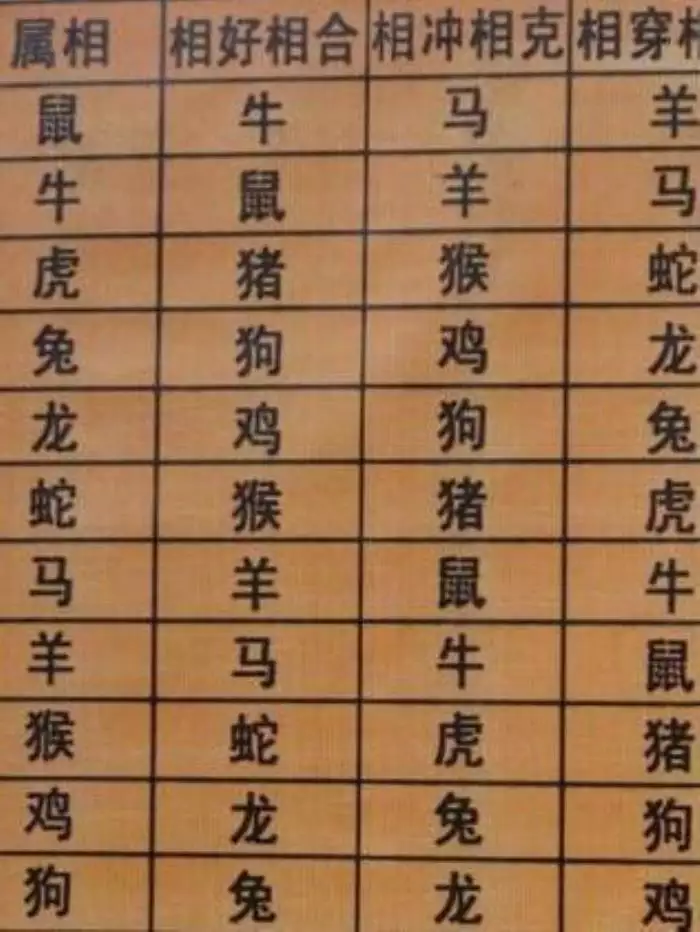 属相 相好相合 相冲相克 相穿相
鼠 牛 马 羊
牛 鼠 羊 马
虎 猪 猴 蛇
兔 狗 鸡 龙
龙 鸡 狗 兔
蛇 猴 猪 虎
马 羊 鼠 牛
羊 马 牛 鼠
猴 蛇 虎 猪
鸡 龙 兔 狗
狗 兔 龙 鸡